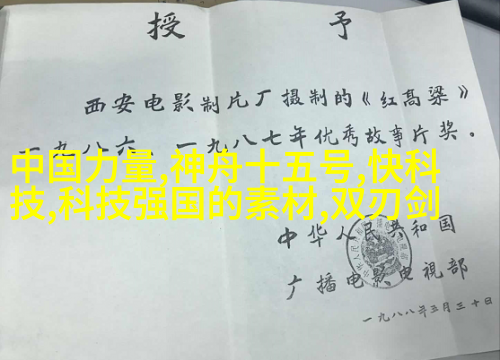 授 予
西安电影制片厂摄制的《红高粱》
一九八六、一九八七年优秀故事片奖。
中国力量,神舟十五号,快科
技,科技强国的素材,双刃剑
中华人民共和国
广播电影电视部
一九八八年三月三十日